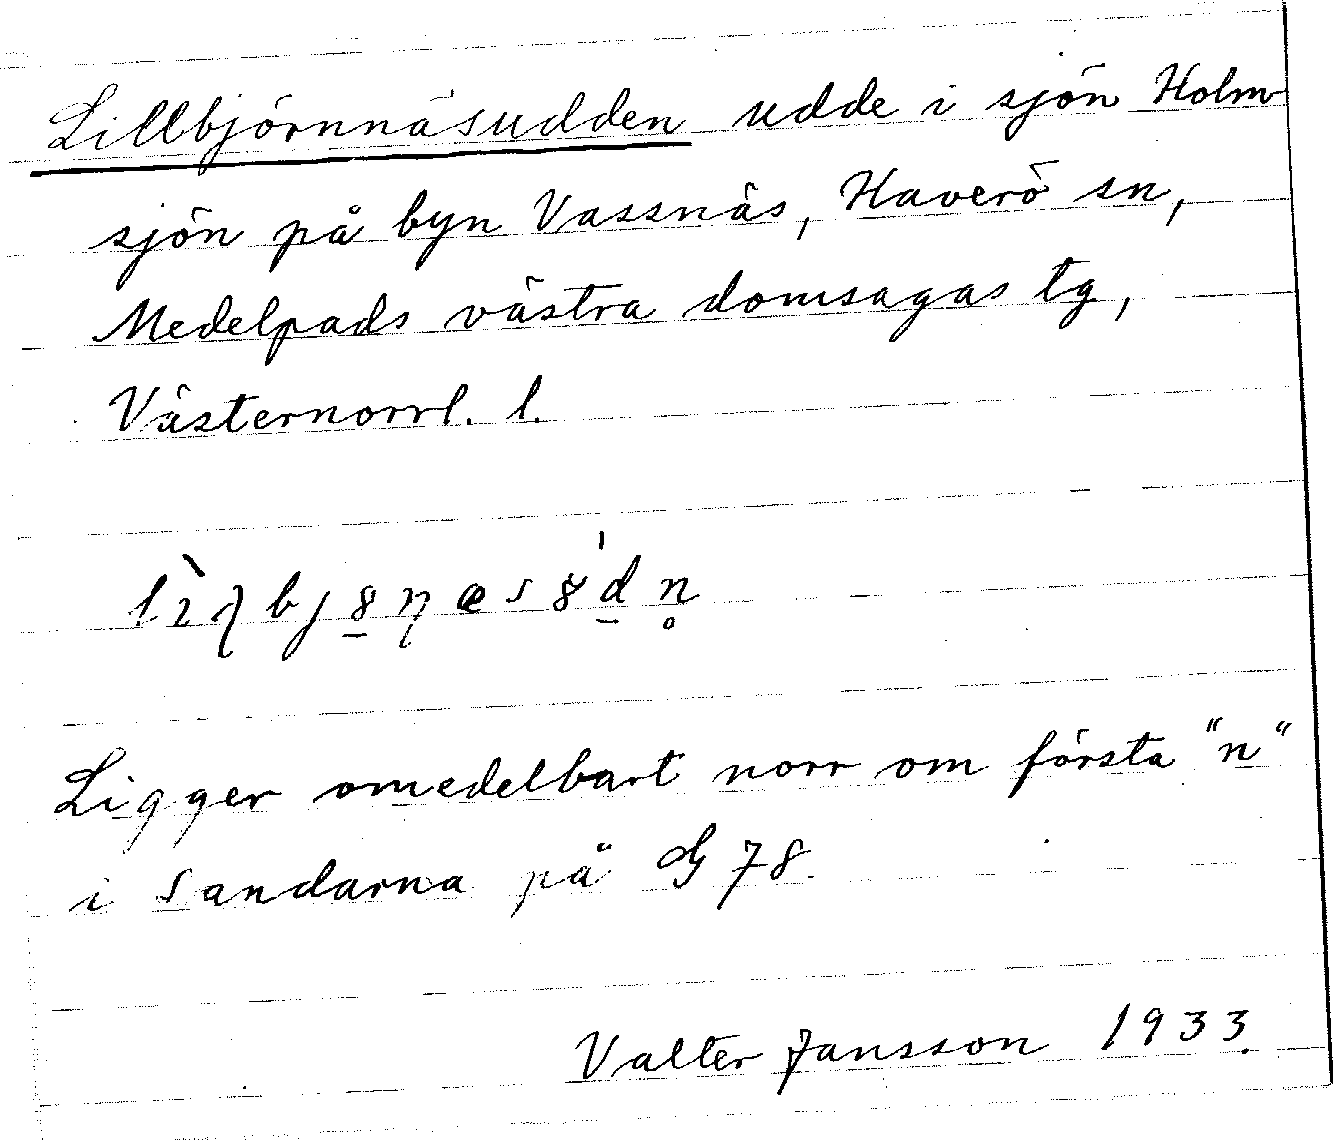 Lillbjörnnäsudden udde i sjön Holm
sjön på byn Vassnäs, Haverö sn,
Medelpads västra domsagas tg,
Västernorrl. l.
Ligger omedelbart norr om första "n"
i Sandarna på G 78.
Valter Jansson 1933.